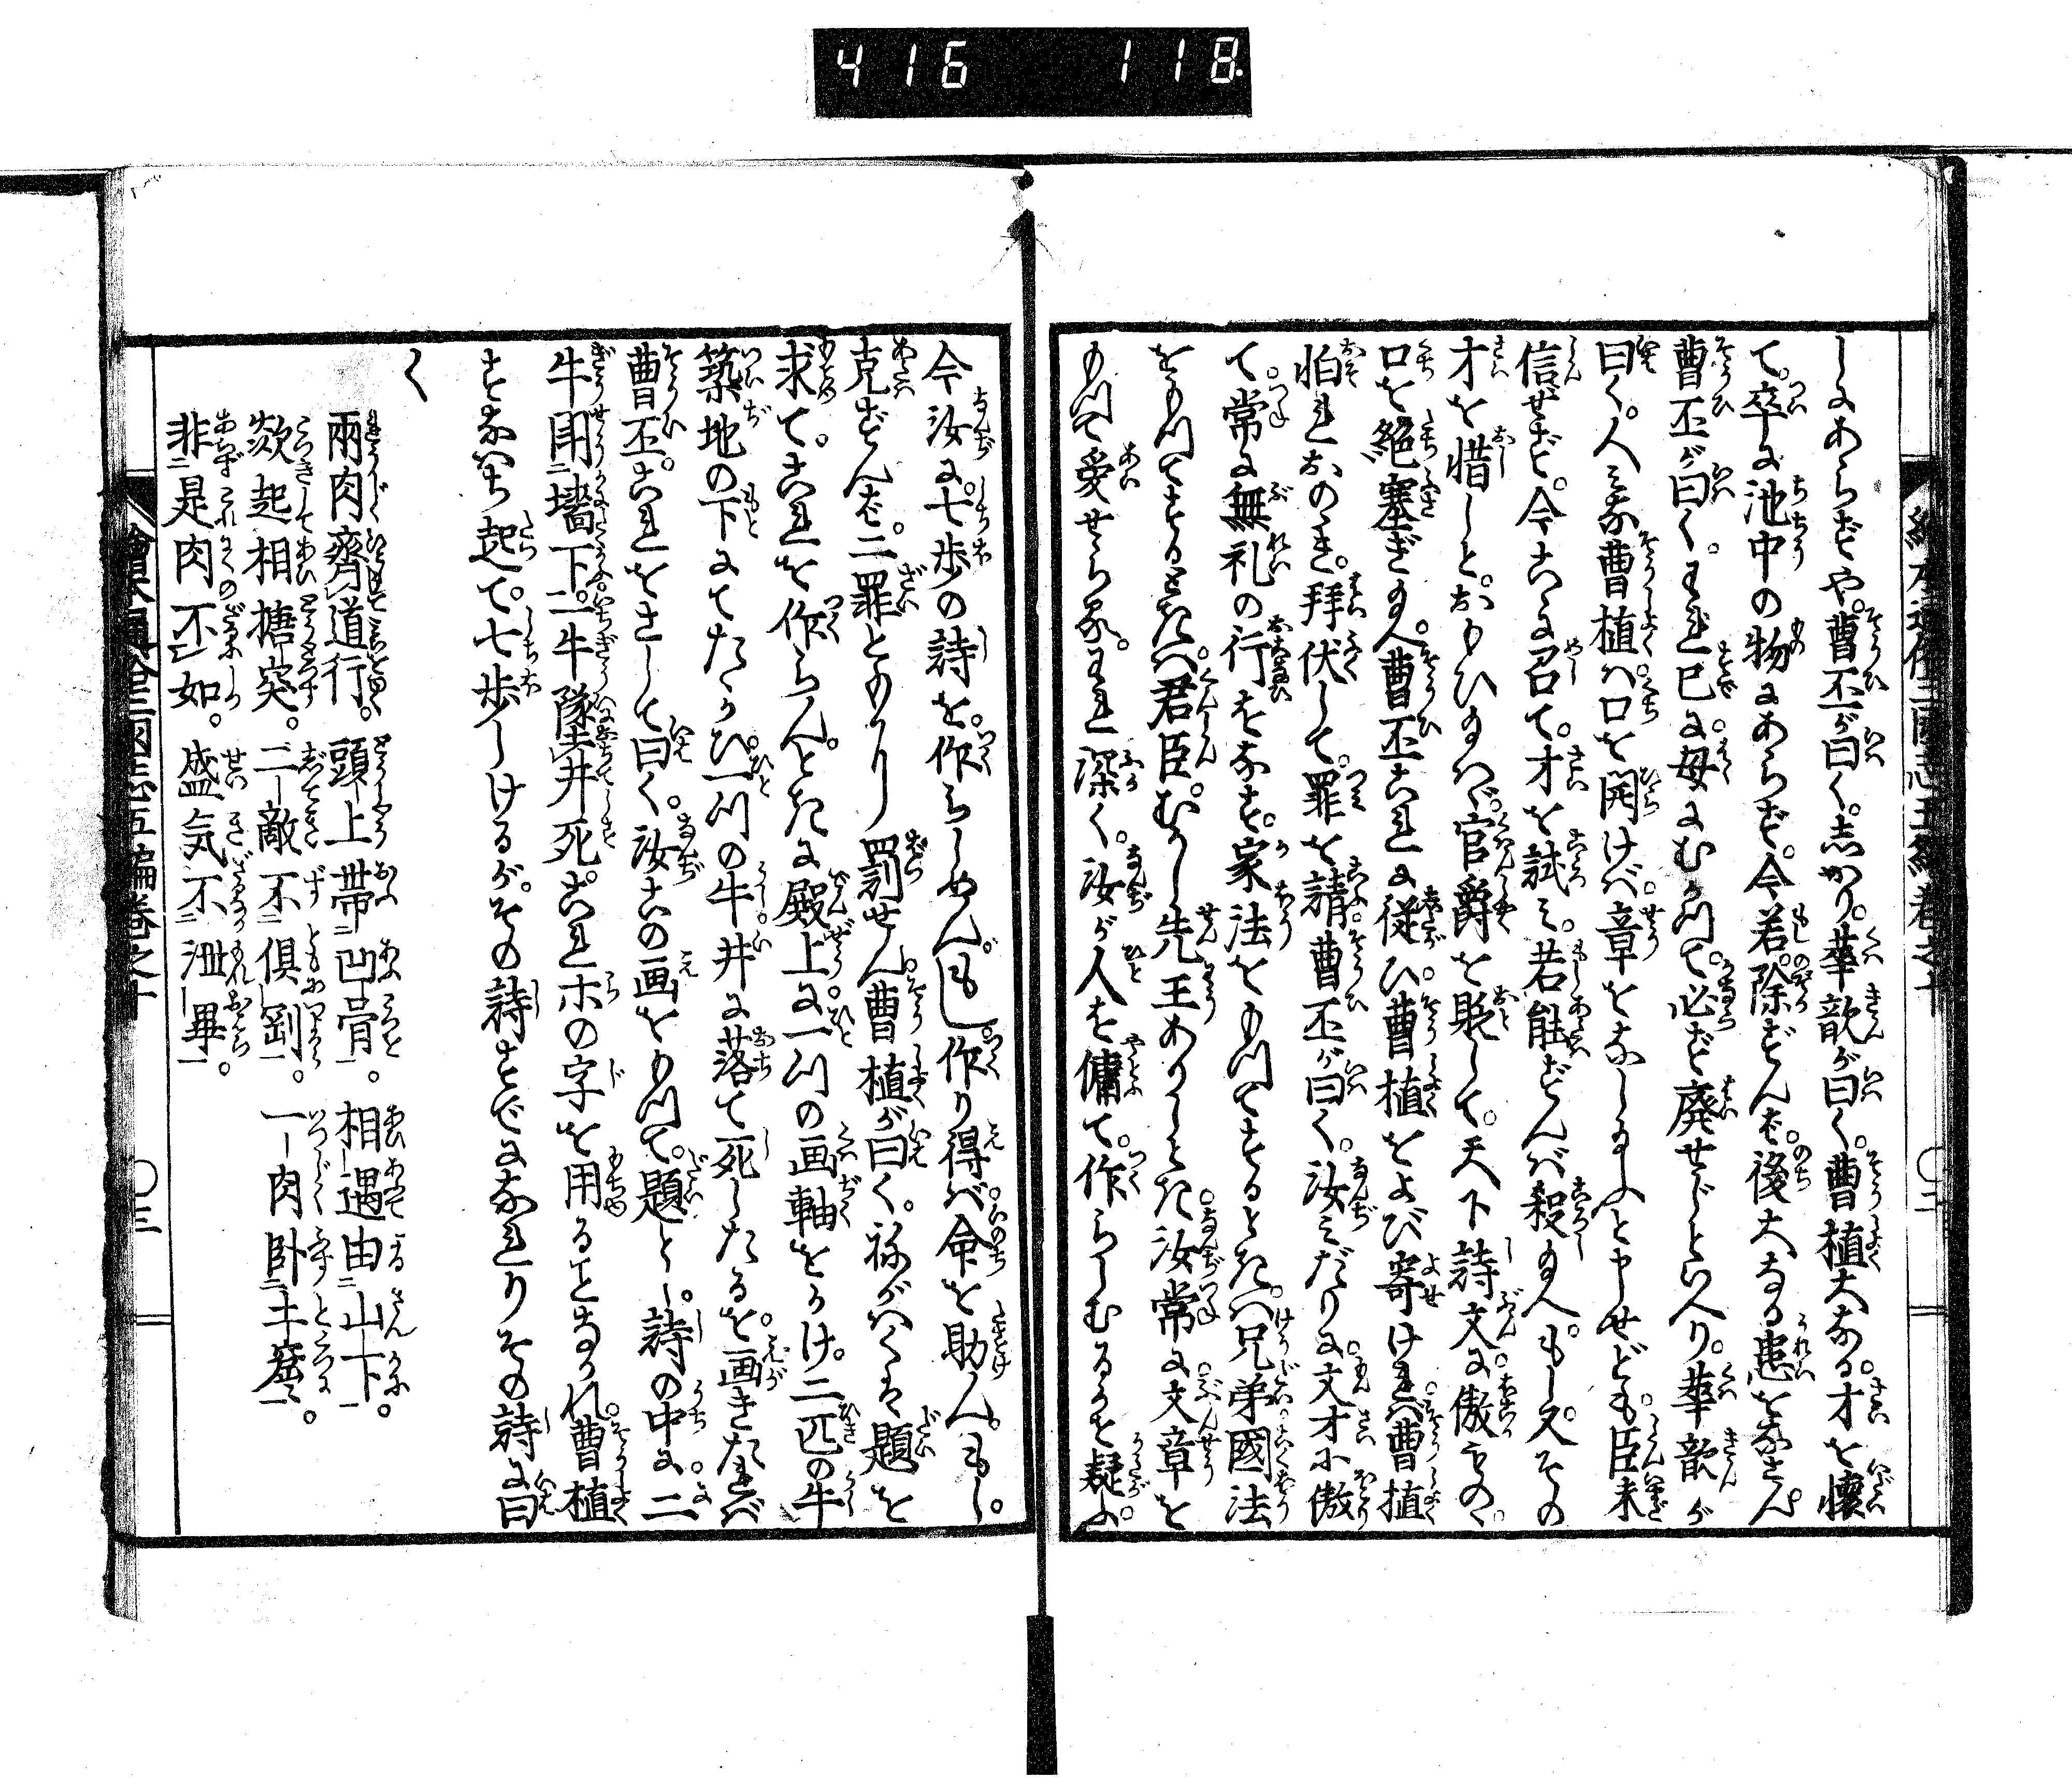 416 118
しにあらずや。曹丕が曰く。志かり。華歆が曰く。曹植大なる。才を懐
て。卒に池中の物にあらず。今若除ずんば。後大なる患をなさん。
曹丕が曰く。われ已に。母にむかつて。必ず廃せじといへり。華歆が
曰く。人みな曹植は。口を開けば。章をなし給ふと申せども。臣未
信ぜず。今これに召て。才を試み。若能ずんば殺給へ。もし又その
才を惜しと。おもひ給はゞ。官爵を貶して。天下詩文に傲ものゝ
口を絶塞ぎ給へ。曹丕これに従ひ。曹植をよび寄ければ。曹植
怕れおのゝき。拜伏して。罪を請。曹丕が曰く。汝みだりに。文才に傲
て。常に無礼の行をなす。家法をもつてするときは。兄弟國法
をもつてするときは。君臣。むかし先王ありしとき。汝常に。文章を
もつて愛せらる。われ深く。汝が人を傭て。作らしむるかを疑ふ。
今汝に。七歩の詩を。作らしめん。もし。作り得ば。命を助ん。もし。
克ずんば。二罪ともに罰せん。曹植が曰く。祢がはくは題を
求て。これを作らん。ときに殿上に。一つの画軸をかけ。二匹の牛
築地の下にてたゝかひ。一つの牛。井に落て死したるを。画きたれば
曹丕。これをさして曰く。汝この画をもつて。題とし。詩の中に。二
牛鬪墻下。一牛墜井死。これホの字を用ることなかれ。曹植
すなはち起て。七歩しけるが。その詩すでになれりその詩に曰
く
兩肉齊道行。頭上帶凹骨。相遇由山下。
欻起相搪突。二敵不俱剛。一肉卧土窟。
非是肉不如。盛気不泄畢。
繪本通俗三國志五編巻之十 〇三